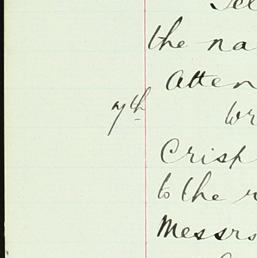 the na
Atten
7th
Wr
Crisp
to the r
Messrs